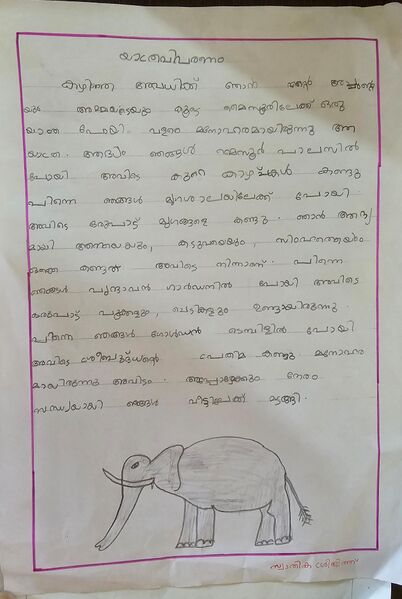 യാത്രവിവരണം
കഴിഞ്ഞ അവധിക്ക് ഞാൻ എന്റെ അച്ഛന്റെ
യും അമ്മയുടെയും കൂടെ മൈസൂരിലേക്ക് ഒരു
യാത്ര പോയി. വളരെ മനോഹരമായിരുന്നു ആ
യാത്ര. ആദ്യം ഞങ്ങൾ മൈസൂർ പാലസിൽ
പോയി അവിടെ കുറെ കാഴ്ചകൾ കണ്ടു
പിന്നെ ഞങ്ങൾ മൃഗശാലയിലേക്ക് പോയി.
അവിടെ ഒരുപാട് മൃഗങ്ങളെ കണ്ടു. ഞാൻ ആദ്യ
മായി ആനയെയും, കടുവയെയും, സിംഹത്തെയും
ഒക്കെ കണ്ടത് അവിടെ നിന്നാണ്. പിന്നെ
ഞങ്ങൾ വൃന്ദാവൻ ഗാർഡനിൽ പോയി അവിടെ
ഒരുപാട് പൂക്കളും, ചെടികളും ഉണ്ടായിരുന്നു.
പിന്നെ ഞങ്ങൾ ഗോൾഡൻ ടെമ്പിളിൽ പോയി
അവിടെ ശ്രീബുദ്ധന്റെ പ്രതിമ കണ്ടു. മനോഹര
മായിരുന്നു അവിടം. അപ്പോഴേക്കും നേരം
സന്ധ്യയായി ഞങ്ങൾ വീട്ടിലേക്ക് മടങ്ങി.
സ്വാതിക